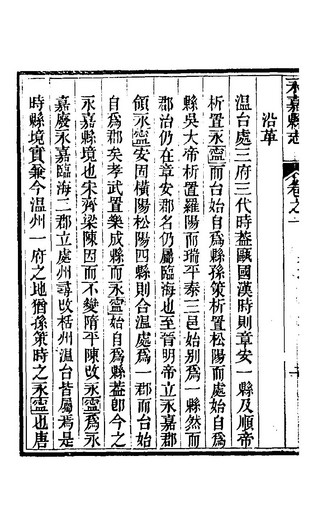 永嘉縣志 卷之一
沿革
溫台處三府三代時蓋甌國漢時則章安一縣及順帝
析置永寧而台始自爲縣孫策析置松陽而處始自爲
縣吳大帝析置羅陽而瑞平泰三邑始別爲一縣然而
郡治仍在章安郡名仍屬臨海也至晉明帝立永嘉郡
領永寧安固橫陽松陽四縣則合溫處爲一郡而台始
自爲郡矣孝武置樂成縣而永寧始自爲縣蓋卽今之
永嘉縣境也宋齊梁陳因而不變隋平陳改永寧爲永
嘉廢永嘉臨海二郡立處州尋改栝州溫台皆屬焉是
時縣境實兼今溫州一府之地猶孫策時之永寧也唐